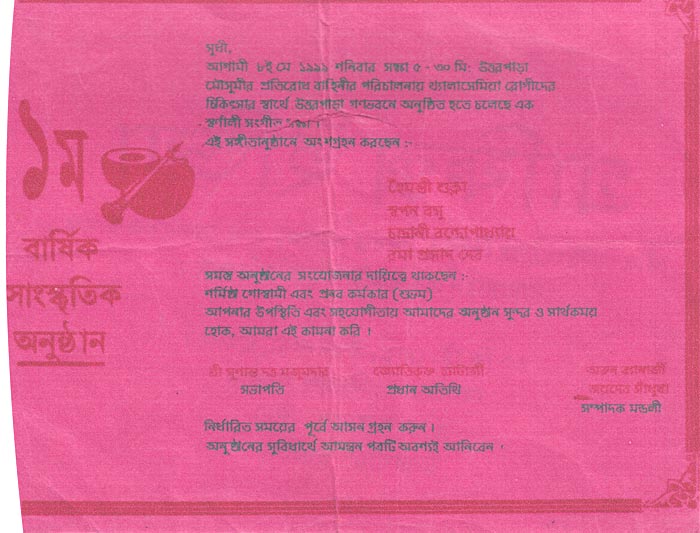 ১ম
বার্ষিক
সাংস্কৃতিক
অনুষ্ঠান
সুধী,
আগামী ৮ই মে ১৯৯৯ শনিবার সন্ধ্যা ৫ - ৩০ মি: উত্তরপাড়া
মৌসুমীর প্রতিরোধ বাহিনীর পরিচালনায় থ্যালাসেমিয়া রোগীদের
চিকিৎসার স্বার্থে উত্তরপাড়া গণভবনে অনুষ্ঠিত হতে চলেছে এক
স্বর্ণালী সংগীত সন্ধ্যা ।
এই সঙ্গীতানুষ্ঠানে অংশগ্রহন করছেন :-
হৈমন্তী শুক্লা
স্বপন বসু
চন্দ্রানী বন্দোপাধ্যায়
রমা প্রসাদ দেব
সমস্ত অনুষ্ঠানের সংযোজনার দায়িত্বে থাকছেন :-
শর্মিষ্ঠা গোস্বামী এবং প্রনব কর্মকার (শুভম)
আপনার উপস্থিতি এবং সহযোগীতায় আমাদের অনুষ্ঠান সুন্দর ও সার্থকময়
হোক, আমরা এই কামনা করি ।
শ্রী সুশান্ত দত্ত মজুমদার
সভাপতি
জ্যোতিকৃষ্ণ চ্যাটার্জী
প্রধান অতিথি
ব্যানার্জী
জয়দেব
সম্পাদক মন্ডলী
নির্ধারিত সময়ের পূর্বে আসন গ্রহন করুন ।
অনুষ্ঠানের সুবিধার্থে আমন্ত্রন পত্রটি অবশ্যই আনিবেন ।